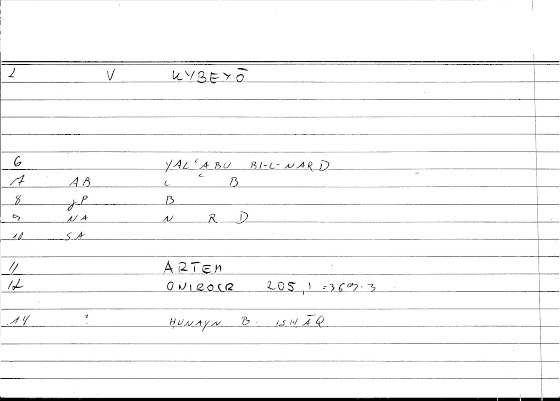 2 V KYBEYŌ
6 YALʿABU BI-L-NARD
7 AB L ʿ B
8 gP B
9 NA N R D
10 SA
11 ARTEM
12 ONIROCR 205,1 = 369.3
14 : HUNAYN B. ISHĀQ